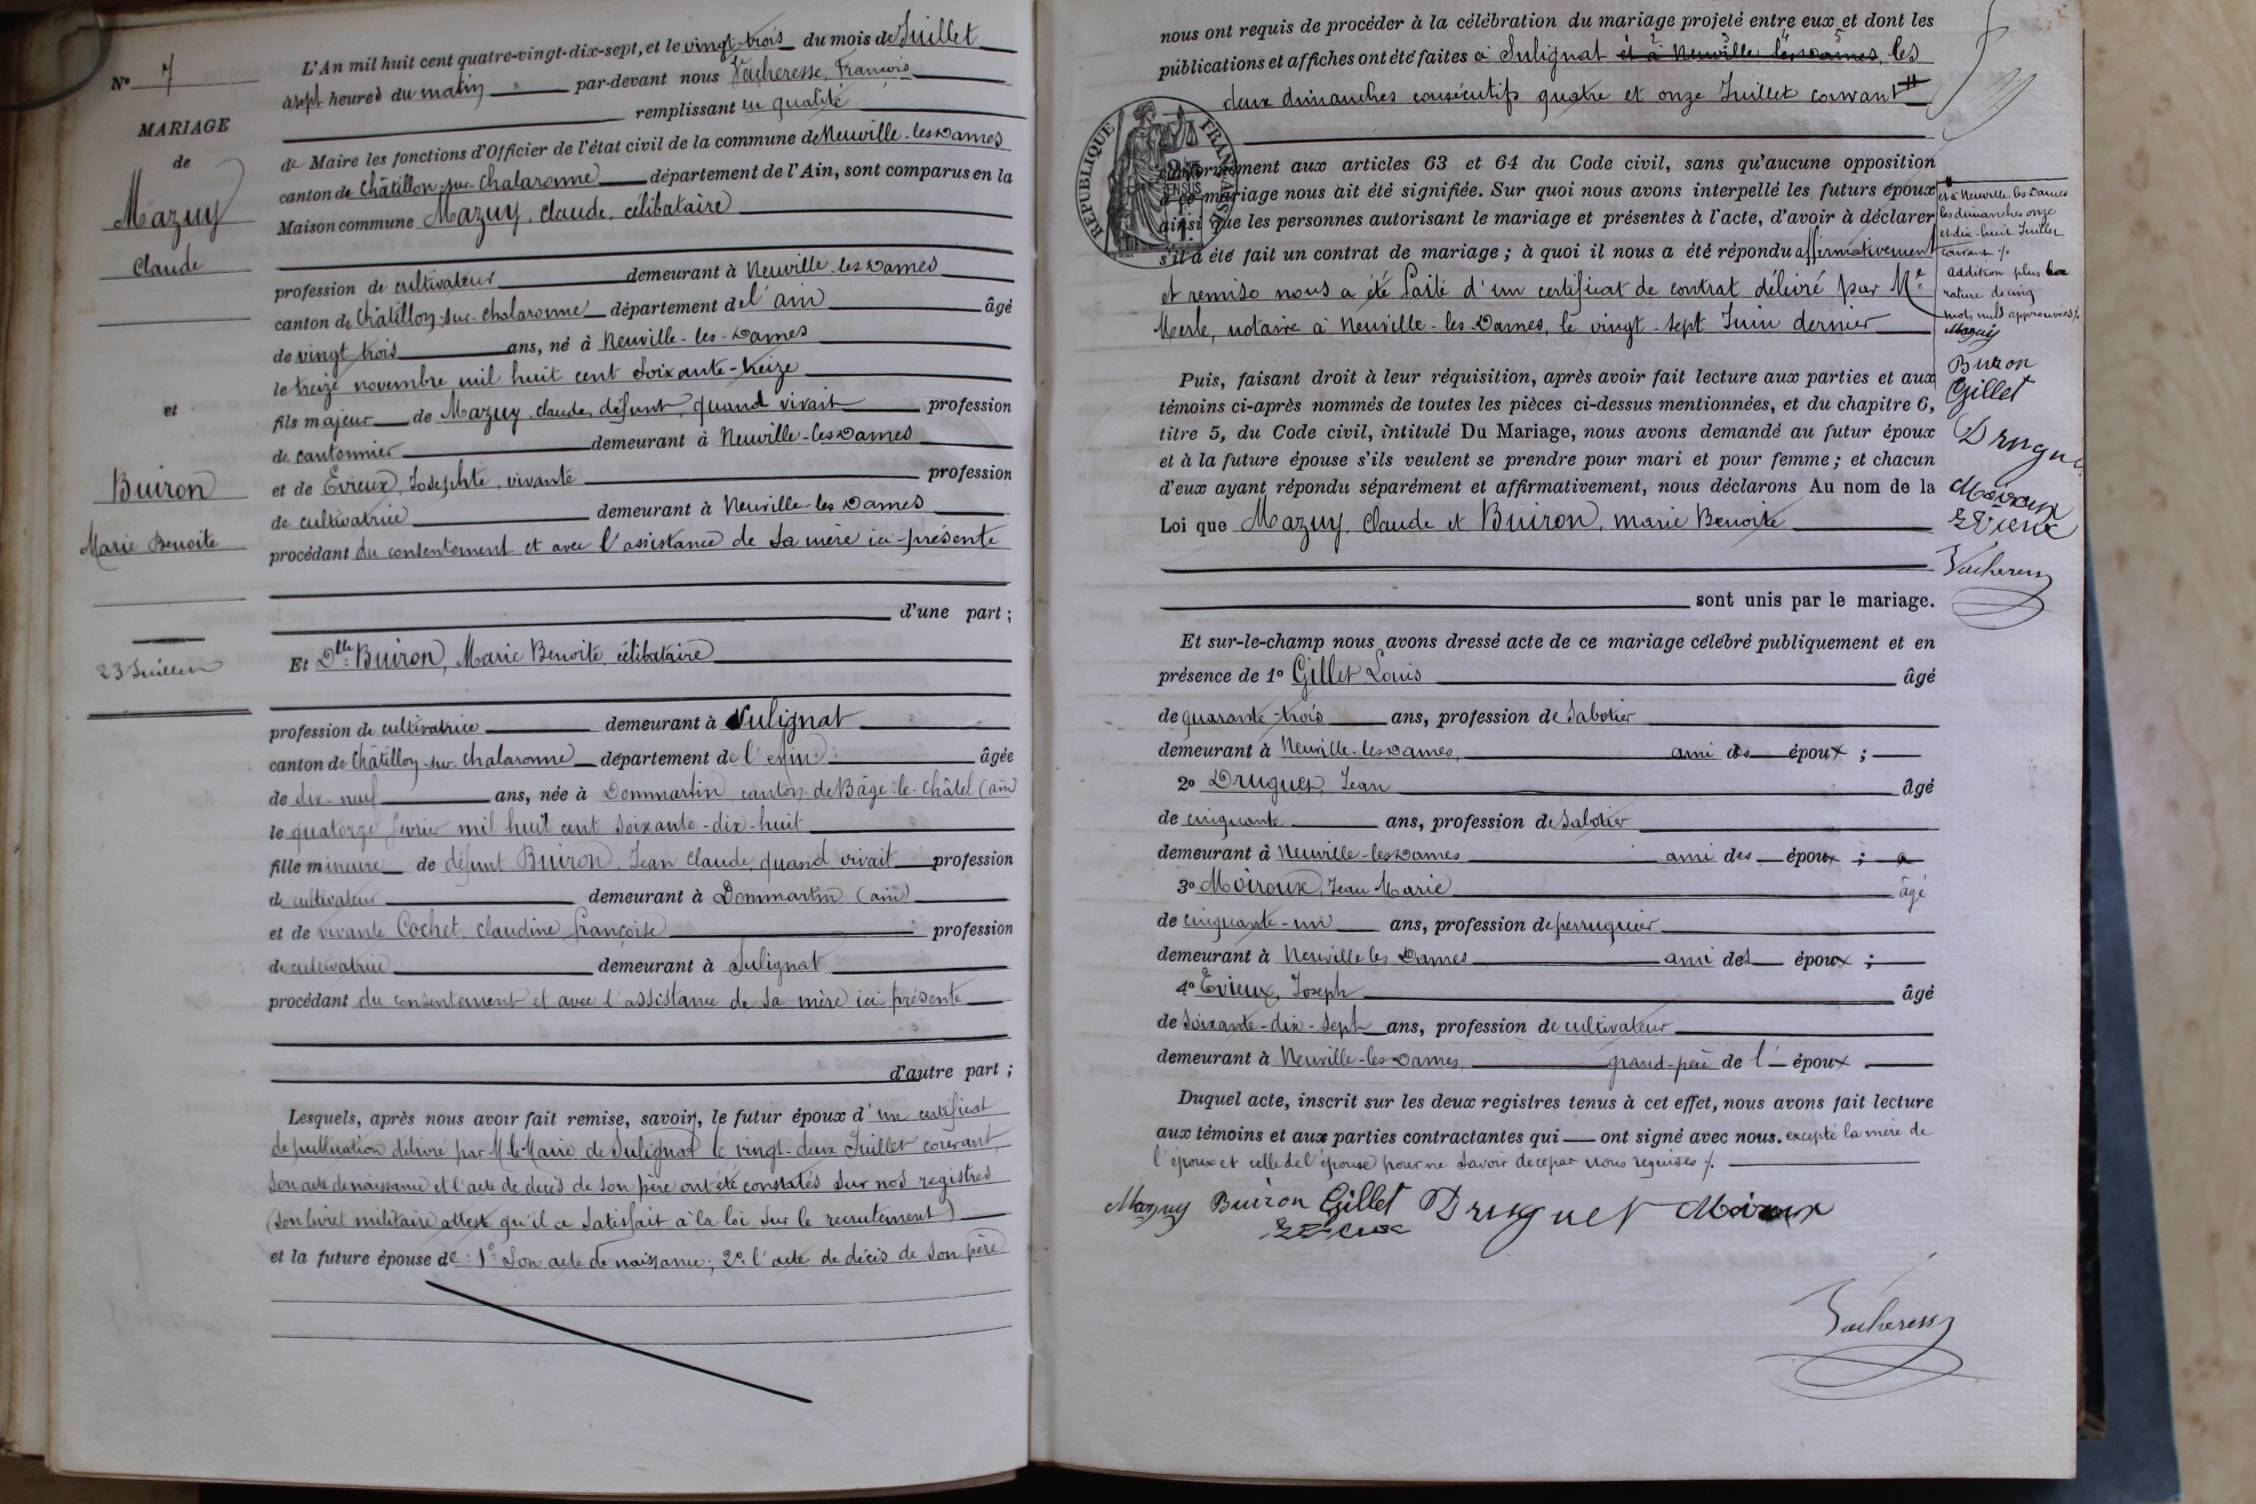 L'An mil huit cent quatre-vingt-dix-sept, et le vingt-trois du mois de Juillet
N° 7
à sept heures du matin par-devant nous Vacheresse, François
remplissant en qualité
MARIAGE
de Maire les fonctions d'Officier de l'état civil de la commune de Neuville-les-Dames
de
canton de Châtillon-sur-Chalaronne département de l'Ain, sont comparus en la
Mazuy
Maison commune Mazuy, Claude, célibataire
Claude
profession de cultivateur demeurant à Neuville-les-Dames
canton de Châtillon-sur-Chalaronne département de l'ain âgé
de vingt trois ans, né à Neuville-les-Dames
le treize novembre mil huit cent Soixante-treize
et
fils majeur de Mazuy, Claude, défunt, quand vivait profession
de cantonnier demeurant à Neuville-les-Dames
Buiron
et de Evieux, Josephte, vivante profession
de cultivatrice demeurant à Neuville-les Dames
Marie Benoite
procédant du consentement et avec l'assistance de sa mère ici-présente
d'une part ;
23 Juillet
Et Dlle Buiron, Marie Benoite, célibataire
profession de cultivatrice demeurant à Sulignat
canton de Châtillon-sur-Chalaronne département de l'ain âgée
de dix-neuf ans, née à Dommartin canton de Bâgé-le-Châtel (ain)
le quatorze février mil huit cent soixante-dix-huit
fille mineure de défunt Buiron, Jean Claude, quand vivait profession
de cultivateur demeurant à Dommartin (ain)
et de vivante Cochet, Claudine françoise profession
de cultivatrice demeurant à Sulignat
procédant du consentement et avec l'assistance de sa mère ici présente
d'autre part ;
Lesquels, après nous avoir fait remise, savoir, le futur époux d'un certificat
de publication délivré par M. le Maire de Sulignat le vingt-deux Juillet courant,
Son acte de naissance et l'acte de décès de son père ont été constatés sur nos registres
(son livret militaire atteste qu'il a satisfait à la loi sur le recrutement)
et la future épouse de : 1° Son acte de naissance ; 2° l'acte de décès de son père
nous ont requis de procéder à la célébration du mariage projeté entre eux et dont les
publications et affiches ont été faites à Sulignat et à Neuville les Dames, les
deux dimanches consécutifs quatre et onze Juillet courant #
RÉPUBLIQUE FRANÇAISE
conformément aux articles 63 et 64 du Code civil, sans qu'aucune opposition
à ce mariage nous ait été signifiée. Sur quoi nous avons interpellé les futurs époux
ainsi que les personnes autorisant le mariage et présentes à l'acte, d'avoir à déclarer
s'il a été fait un contrat de mariage ; à quoi il nous a été répondu affirmativement
et remise nous a été faite d'un certificat de contrat délivré par Me
Merle, notaire à Neuville-les-Dames, le vingt-sept Juin dernier
# et à Neuville-les-Dames
les dimanches onze
et dix-huit Juillet
courant ./.
addition plus
rature de cinq
mots nuls approuvées ./.
Mazuy
Buiron
Gillet
Druguet
Moiroux
Evieux
Vacheresse
Puis, faisant droit à leur réquisition, après avoir fait lecture aux parties et aux
témoins ci-après nommés de toutes les pièces ci-dessus mentionnées, et du chapitre 6,
titre 5, du Code civil, intitulé Du Mariage, nous avons demandé au futur époux
et à la future épouse s'ils veulent se prendre pour mari et pour femme ; et chacun
d'eux ayant répondu séparément et affirmativement, nous déclarons Au nom de la
Loi que Mazuy, Claude et Buiron, Marie Benoite
sont unis par le mariage.
Et sur-le-champ nous avons dressé acte de ce mariage célébré publiquement et en
présence de 1° Gillet Louis âgé
de quarante-trois ans, profession de Sabotier
demeurant à Neuville-les-Dames, ami des époux ;
2° Druguet, Jean âgé
de cinquante ans, profession de Sabotier
demeurant à Neuville-les-Dames ami des époux ;
3° Moiroux, Jean Marie âgé
de cinquante-un ans, profession de perruquier
demeurant à Neuville les Dames ami des époux ;
4° Evieux, Joseph âgé
de Soixante-dix-sept ans, profession de cultivateur
demeurant à Neuville-les-Dames, grand-père de l'époux.
Duquel acte, inscrit sur les deux registres tenus à cet effet, nous avons fait lecture
aux témoins et aux parties contractantes qui ont signé avec nous. excepté la mère de
l'époux et celle de l'épouse pour ne savoir de ce par nous requises ./.
Mazuy Buiron Gillet Druguet Moiroux
Evieux
Vacheresse